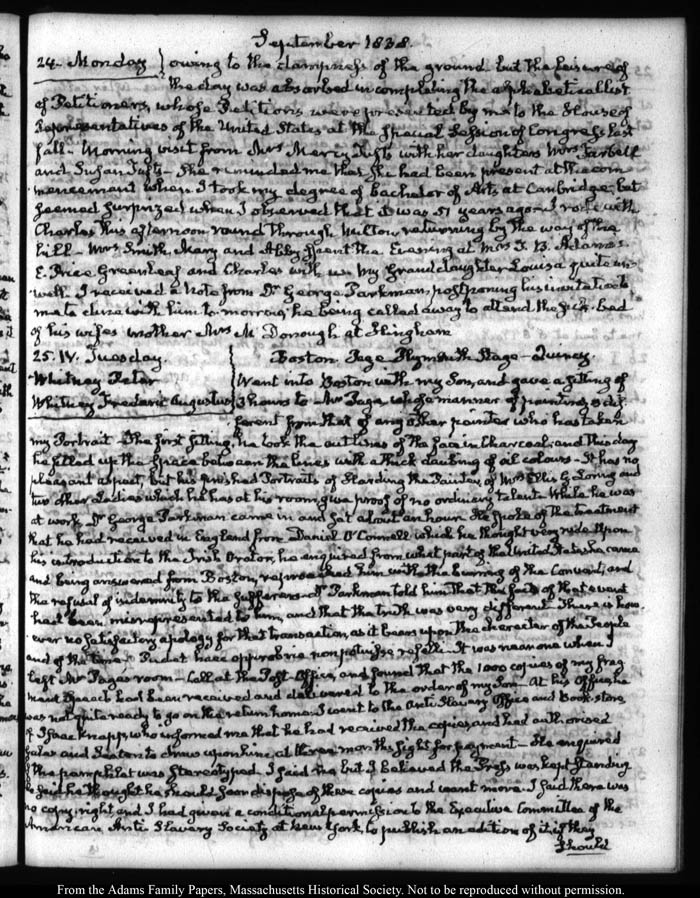 September 1838.
24. Monday } owing to the dampness of the ground but the leisure of
the day was absorbed in completing the alphabetical list
of Petitioners, whose Petitions were presented by me to the House of
Representatives of the United States at the Special Session of Congress last
fall. Morning visit from Mrs Mercy Tufts with her daughters Mrs Tarbell
and Susan Tufts. She reminded me that she had been present at the com
mencement when I took my degree of Bachelor of Arts at Cambridge, but
seemed surprized when I observed that it was 51 years ago. I rode with
Charles this afternoon round through Milton, returning by the way of the
hill. Mrs Smith, Mary and Abby spent the Evening at Mrs T. B. Adams's
E. Price Greenleaf and Charles with us. My Granddaughter Louisa quite un-
well. I received a Note from Dr George Parkman, postponing his invitation to
me to dine with him to-morrow, he being called away to attend the sick-bed
of his wife's mother Mrs McDonough at Hingham
25. IV. Tuesday. Boston. Page. Plymouth Stage - Quincy.
Whitney Peter
Whitney Frederic Augustus
Went into Boston with my Son, and gave a sitting of
3 hours to Mr Page, whose manner of painting is dif
ferent from that of any other painter who has taken
my Portrait. The first sitting, he took the outlines of the face in Charcoal; and this day
he filled up the space between the lines with a thick daubing of oil colours. It has no
pleasant aspect, but his finished Portraits of Harding the Painter, of Mrs Ellis G. Loring and
two other Ladies which he has at his room, give proof of no ordinary talent. While he was
at work, Dr George Parkman came in and sat about an hour. He spoke of the treatment
that he had received in England from Daniel O'Connell which he thought very rude. Upon
his introduction to the Irish Orator, he enquired from what part of the United States he came
and being answered from Boston, reproached him with the burning of the Convent, and
the refusal of indemnity to the sufferers. Dr Parkman told him that the facts of that event
had been misrepresented to him, and that the truth was very different. There is how
ever no satisfactory apology for that transaction, as it bears upon the character of the People
and of the time. Pudet haec opprobria non potuisse refelli. It was near one when I
left Mr Page's room. Call at the Post-Office, and found that the 1000 copies of my frag
ment Speech had been received and delivered to the order of my Son. At his office, he
was not quite ready to go on the return home. I went to the Anti Slavery Office and Book-store
of Isaac Knapp, who informed me that he had received the copies, and had authorised
Gales and Seaton to draw upon him, at three months sight for payment. He enquired
if the pamphlet was stereotyped. I said no but I believed the Press was kept standing
He said he thought he should soon dispose of these copies and want more. I said there was
no copy-right and I had given a conditional permission to the Executive Committee of the
American Anti Slavery Society at New York, to publish an edition of it if they
should
From the Adams Family Papers, Massachusetts Historical Society. Not to be reproduced without permission.